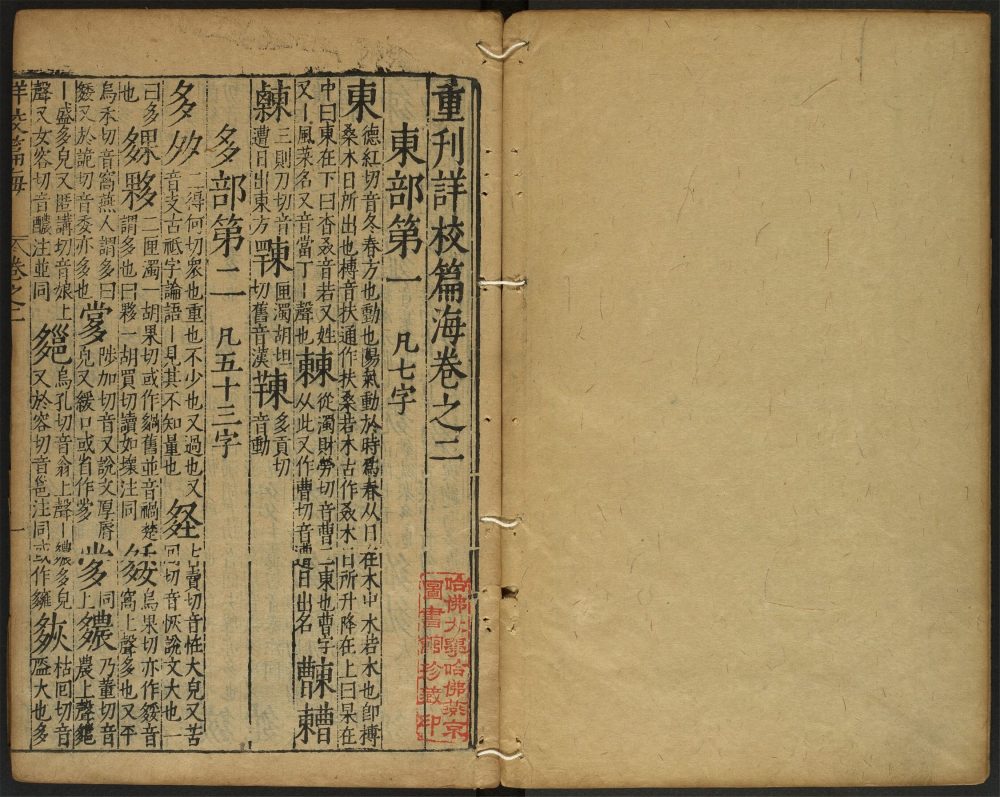 重刊詳校篇海卷之二
東部第一 凡七字
東 德紅切音冬春方也動也陽氣動於時爲春从日在木中木若木也卽榑
桑木日所出也榑音扶通作扶桑若木古作叒木日所升降在上曰杲在
中曰東在下曰杳叒音若又姓
又丨風菜名又音當丁丨聲也 𣍘 從濁財勞切音曹二東也曹字
从此又作曹切音遭日出名
三則刀切音
遭日出東方 匣濁胡坦
切舊音漢 多貢切
音動
多部第二 凡五十三字
多 夛 二得何切衆也重也不少也又過也又
音支古祇字論語丨見其不知量也 古賣切音怪大皃又苦
回切音恢說文大也一
曰多
也 夥 夥 二匣濁一胡果切或作䯞舊並音禍楚
謂多也曰夥一胡買切讀如壞注同 烏果切亦作䋀音
窩上聲多也又平
烏禾切音窩燕人謂多曰
又於詭切音委亦多也 陟加切音又說文厚脣
皃又緩口或省作 同
上 乃董切音
農上聲
丨盛多皃又匿講切音娘上
聲又女容切音醲注並同 烏孔切音翁上聲丨多皃
又於容切音邕注同或作雝 枯回切音
隘大也多
詳校篇海 卷之二 一
哈佛大學哈佛燕京
圖書館珍藏印